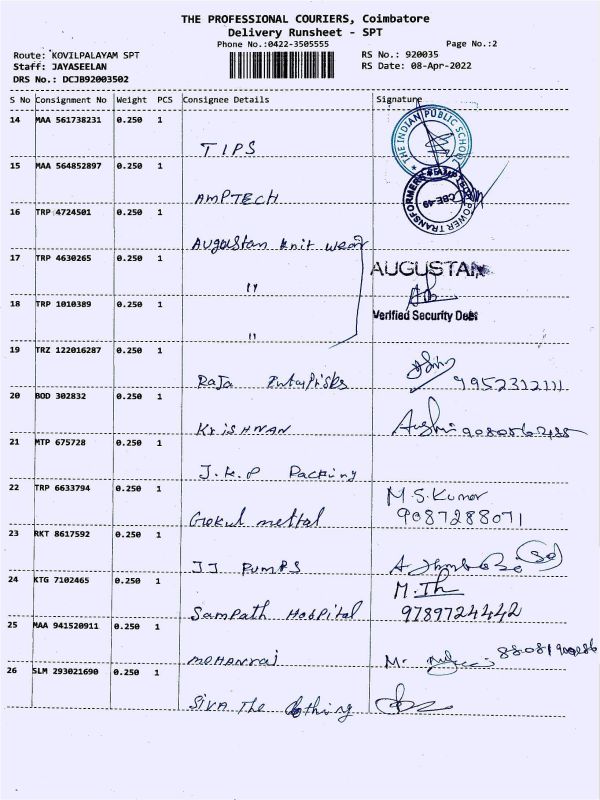 THE PROFESSIONAL COURIERS, Coimbatore
Delivery Runsheet - SPT
Phone No.:0422-3505555
Page No.:2
Route: KOVILPALAYAM SPT
RS No.: 920035
Staff: JAYASEELAN
RS Date: 08-Apr-2022
DRS No.: DCJB92003502
S No Consignment No Weight PCS Consignee Details Signature
14 MAA 561738231 0.250 1
TIPS
THE INDIAN PUBLIC SCHOOL
15 MAA 564852897 0.250 1
AMPTECH
POWER TRANSFORMERS CBE-49
16 TRP 4724501 0.250 1
Augustan knit wear
17 TRP 4630265 0.250 1
"
AUGUSTAN
Verified Security Dept
18 TRP 1010389 0.250 1
"
19 TRZ 122016287 0.250 1
Raja Enterprises 9952312111
20 BOD 302832 0.250 1
KriSHNAN
21 MTP 675728 0.250 1
J.K.P Packing
22 TRP 6633794 0.250 1
M.S.Kumar
Gokul mettal 9087288071
23 RKT 8617592 0.250 1
JJ PUMPS
24 KTG 7102465 0.250 1
M.Th
Sampath Hospital 9789724442
25 MAA 941520911 0.250 1
MOHANraj
26 SLM 293021690 0.250 1
SIVA The